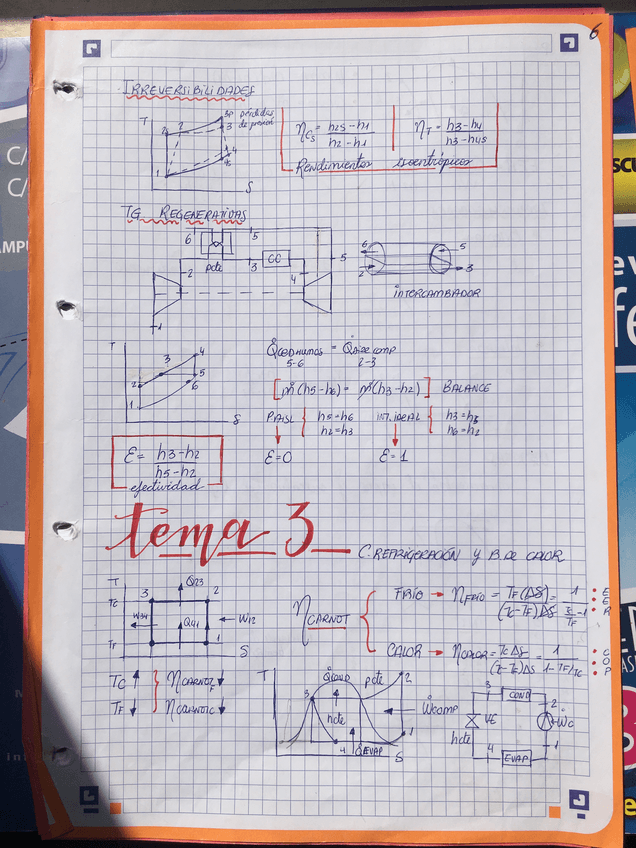 6
IRREVERSIBILIDADES
T
2s 2 3p pérdidas
3 de presión
4
4s
1
S
ηCs = h2s-h1 / h2-h1
ηT = h3-h4 / h3-h4s
Rendimientos isoentrópicos
TG REGENERATIVAS
6 5
pcte 3 CC 5
2 4
1
6 5
2 3
INTERCAMBIADOR
T
4
3
2 5
6
1
S
5-6 2-3
[ṁ(h5-h6) = ṁ(h3-h2)] BALANCE
P.AISL { h5=h6
h2=h3
INT.IDEAL {
ε=0 ε=1
ε = h3-h2 / h5-h2
efectividad
tema 3
C.REFRIGERACIÓN y B. DE CALOR
T
Q23
TC 3 2
W34 Q41 W12
TF
S
ηCARNOT
FRÍO → ηFRÍO = TF(ΔS) / (TC-TF)ΔS = 1 / TC/TF - 1 : EER
CALOR → ηCALOR = TC ΔS / (TC-TF)ΔS = 1 / 1-TF/TC : COP
TC ↑ ηCARNOTF ↓
TF ↓ ηCARNOTC ↓
T
Q̇COND pcte 2
3
hcte Ẇcomp
1
4 Q̇EVAP S
3 COND 2
VE Ẇc
hcte
4 EVAP 1